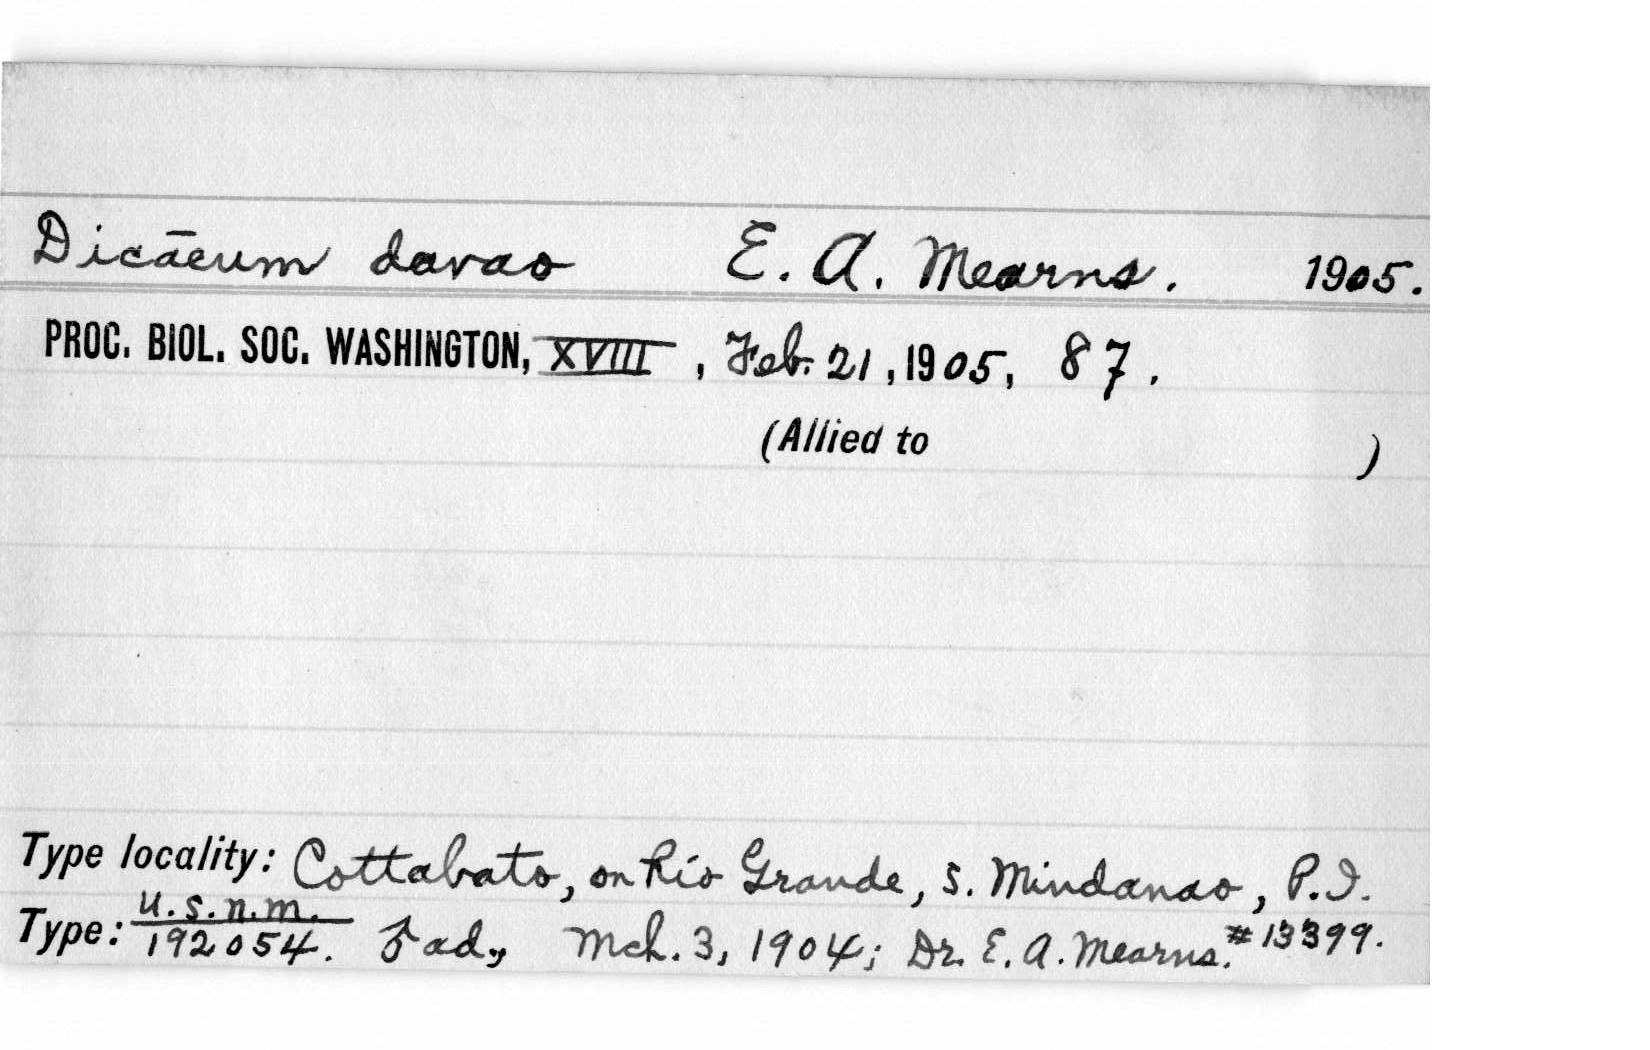 Dicāeum davao E. A. Mearns. 1905.
PROC. BIOL. SOC. WASHINGTON, XVIII, Feb. 21, 1905, 87.
(Allied to )
Type locality: Cottabato, on Rio Grande, S. Mindanao, P.I.
Type: U.S.N.M.
192054. ad., Mch. 3, 1904; Dr. E. A. Mearns. #13399.